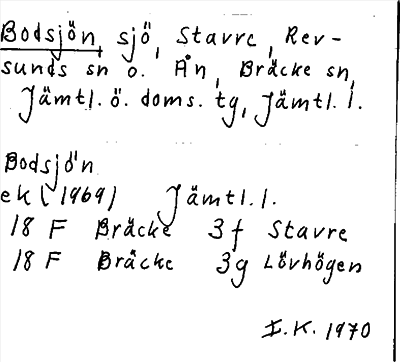 Bodsjön, sjö, Stavre, Rev-
sunds sn o. Ån, Bräcke sn,
Jämtl. ö. doms. tg, Jämtl. l.
Bodsjön
ek (1969) Jämtl. l.
18 F Bräcke 3f Stavre
18 F Bräcke 3g Lövhögen
I. K. 1970